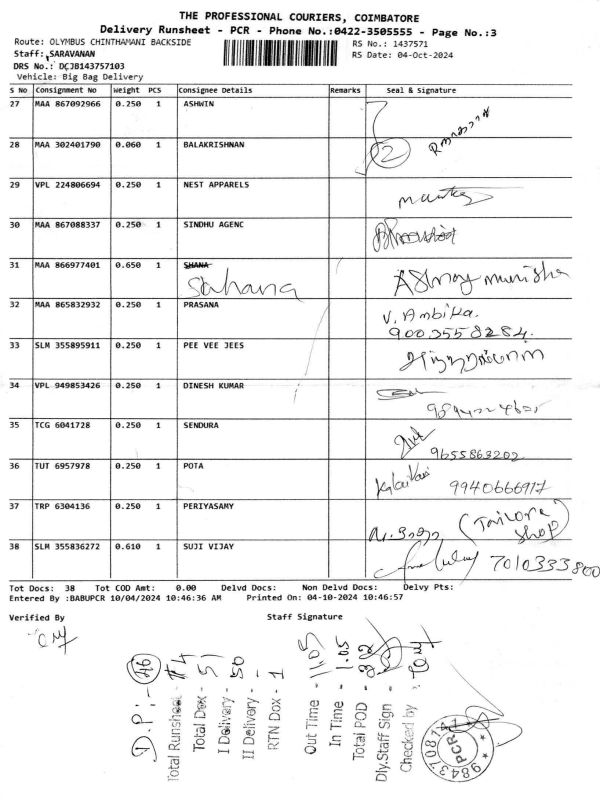 THE PROFESSIONAL COURIERS, COIMBATORE
Delivery Runsheet - PCR - Phone No.:0422-3505555 - Page No.:3
Route: OLYMBUS CHINTHAMANI BACKSIDE
RS No.: 1437571
Staff: SARAVANAN
RS Date: 04-Oct-2024
DRS No.: DCJB143757103
Vehicle: Big Bag Delivery
S No Consignment No Weight PCS Consignee Details Remarks Seal & Signature
27 MAA 867092966 0.250 1 ASHWIN
28 MAA 302401790 0.060 1 BALAKRISHNAN 2
29 VPL 224806694 0.250 1 NEST APPARELS
30 MAA 867088337 0.250 1 SINDHU AGENC
31 MAA 866977401 0.650 1 SHANA
Sahana
32 MAA 865832932 0.250 1 PRASANA V. Ambika.
9003558284.
33 SLM 355895911 0.250 1 PEE VEE JEES
34 VPL 949853426 0.250 1 DINESH KUMAR
35 TCG 6041728 0.250 1 SENDURA
9655863202
36 TUT 6957978 0.250 1 POTA
9940666917
37 TRP 6304136 0.250 1 PERIYASAMY (Tailore shop)
38 SLM 355836272 0.610 1 SUJI VIJAY 7010333800
Tot Docs: 38 Tot COD Amt: 0.00 Delvd Docs: Non Delvd Docs: Delvy Pts:
Entered By :BABUPCR 10/04/2024 10:46:36 AM Printed On: 04-10-2024 10:46:57
Verified By Staff Signature
D.P:- 46
Total Runsheet - 4
Total Dox - 51
I Delivery - 50
II Delivery -
RTN Dox - 1
Out Time - 11.05
In Time - 1.05
Total POD - 32
Dly.Staff Sign -
Checked by -
PCR